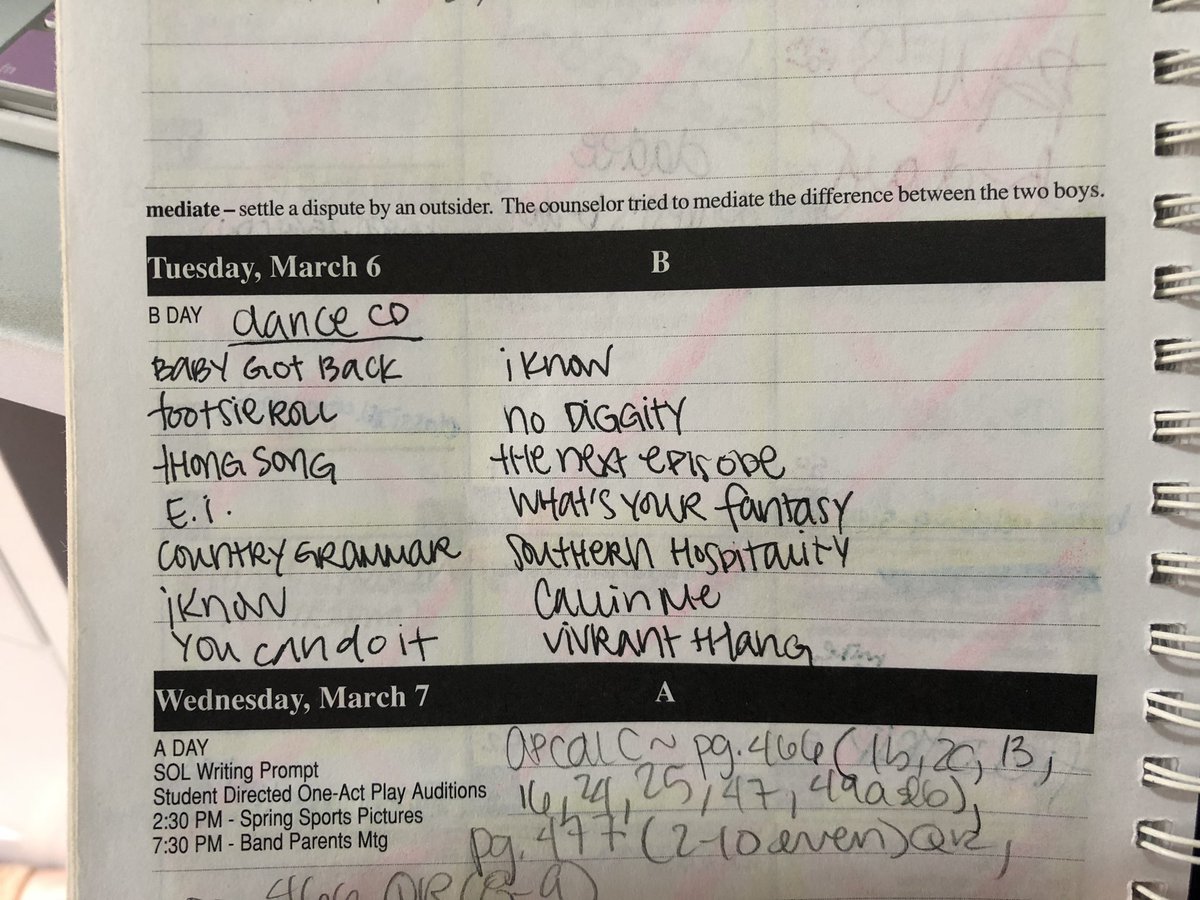 mediate – settle a dispute by an outsider. The counselor tried to mediate the difference between the two boys.
Tuesday, March 6 B
B DAY dance CD
BABY GOT BACK i KNOW
tootsie ROLL NO DIGGITY
tHONG SONG tHE NEXT EPISODE
E.I. WHAT'S YOUR fantasy
COUNTRY GRAMMAR SOUTHERN HOSPITALITY
i KNOW Callin Me
You can do it VIVRANT tHANG
Wednesday, March 7 A
A DAY
SOL Writing Prompt
Student Directed One-Act Play Auditions
2:30 PM - Spring Sports Pictures
7:30 PM - Band Parents Mtg
apcalc~ pg.466 (1b, 2c, 13,
16, 24, 25, 47, 49a&b),
pg.477 (2-10 even)